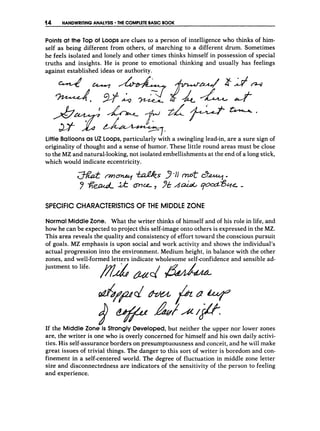 14 HANDWRITING ANALYSIS · THE COMPLETE BASIC BOOK
Points at the Top of Loops are clues to a person of intelligence who thinks of him-
self as being different from others, of marching to a different drum. Sometimes
he feels isolated and lonely and other times thinks himself in possession of special
truths and insights. He is prone to emotional thinking and usually has feelings
against established ideas or authority.
and am looking forward to
much. It is nice to be at
home for the first
It is charming.
Little Balloons as UZ Loops, particularly with a swinging lead-in, are a sure sign of
originality of thought and a sense of humor. These little round areas must be close
to the MZ and natural-looking, not isolated embellishments at the end of a long stick,
which would indicate eccentricity.
That money talks I'll not deny.
I heard it once, It said goodbye.
SPECIFIC CHARACTERISTICS OF THE MIDDLE ZONE
Normal Middle Zone. What the writer thinks of himself and of his role in life, and
how he can be expected to project this self-image onto others is expressed in the MZ.
This area reveals the quality and consistency of effort toward the conscious pursuit
of goals. MZ emphasis is upon social and work activity and shows the individual's
actual progression into the environment. Medium height, in balance with the other
zones, and well-formed letters indicate wholesome self-confidence and sensible ad-
justment to life.
Mike and Barbara
stopped over for a cup
of coffee last night.
If the Middle Zone is Strongly Developed, but neither the upper nor lower zones
are, the writer is one who is overly concerned for himself and his own daily activi-
ties. His self-assurance borders on presumptuousness and conceit, and he will make
great issues of trivial things. The danger to this sort of writer is boredom and con-
finement in a self-centered world. The degree of fluctuation in middle zone letter
size and disconnectedness are indicators of the sensitivity of the person to feeling
and experience.